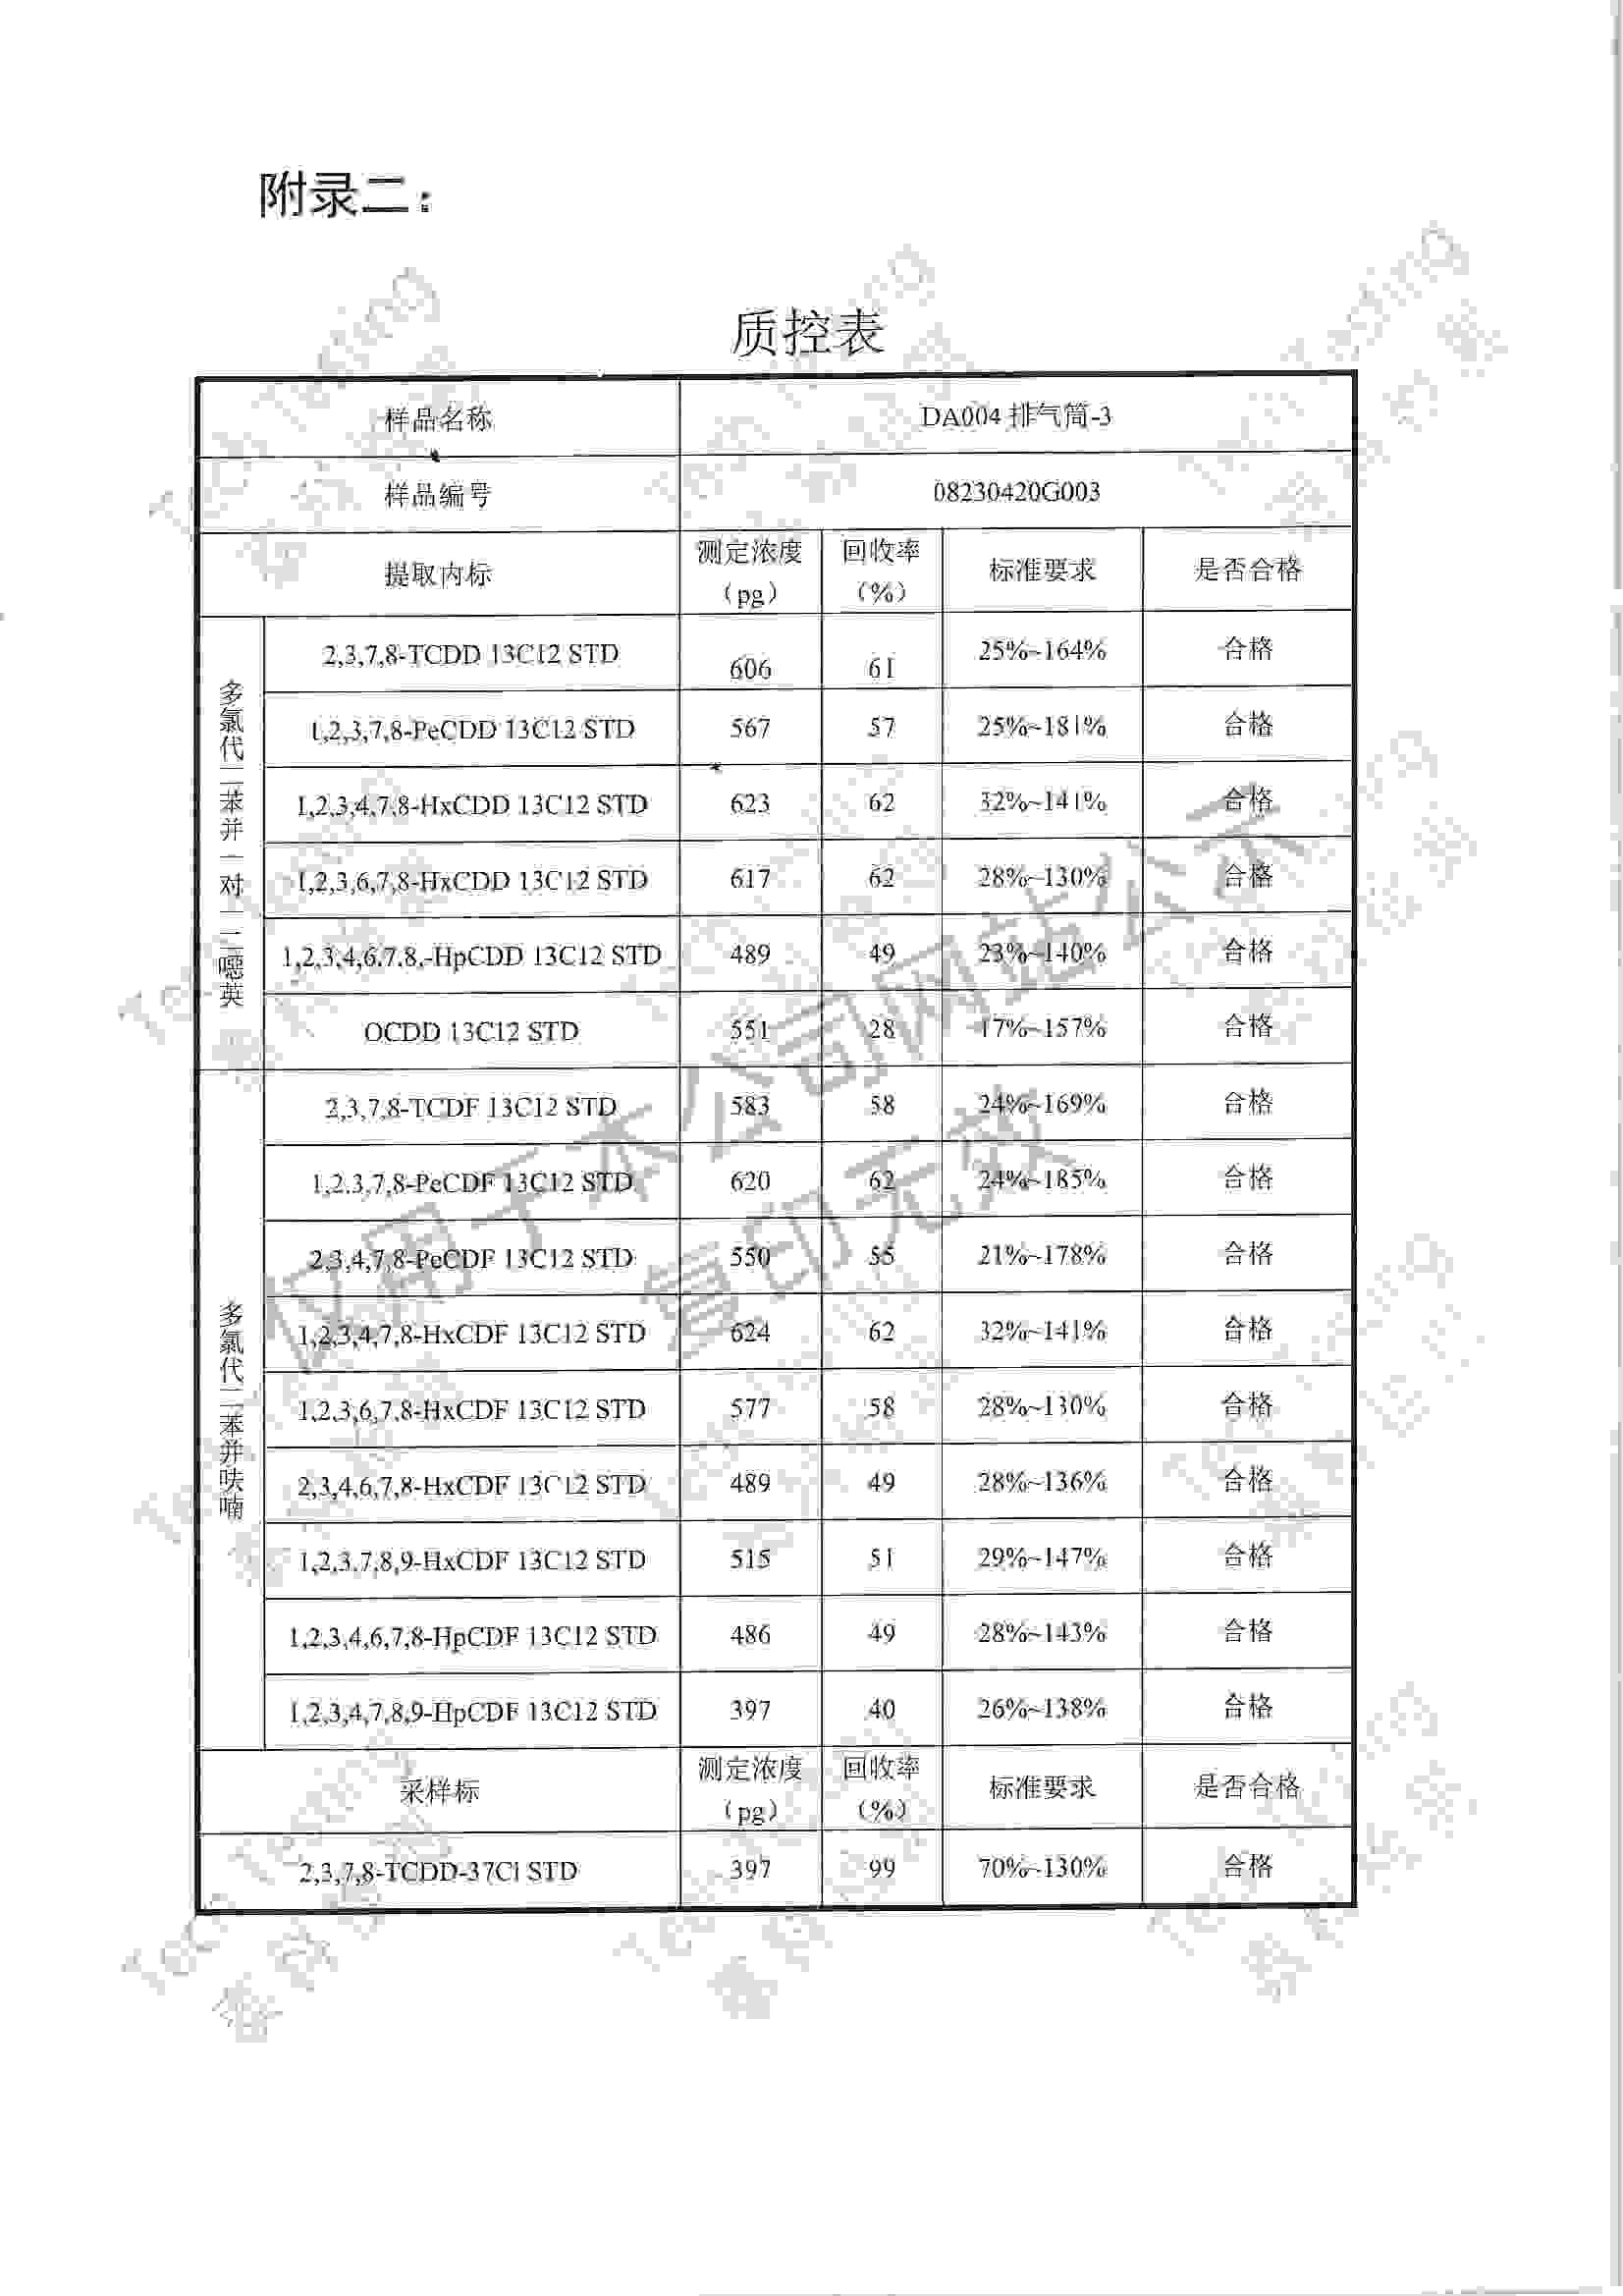 附录二：
质控表
样品名称 DA004 排气筒-3
样品编号 08230420G003
提取内标 测定浓度（pg） 回收率（%） 标准要求 是否合格
多氯代二苯并-对-二噁英
2,3,7,8-TCDD 13C12 STD 606 61 25%~164% 合格
1,2,3,7,8-PeCDD 13C12 STD 567 57 25%~181% 合格
1,2,3,4,7,8-HxCDD 13C12 STD 623 62 32%~141% 合格
1,2,3,6,7,8-HxCDD 13C12 STD 617 62 28%~130% 合格
1,2,3,4,6,7,8,-HpCDD 13C12 STD 489 49 23%~140% 合格
OCDD 13C12 STD 551 28 17%~157% 合格
多氯代二苯并呋喃
2,3,7,8-TCDF 13C12 STD 583 58 24%~169% 合格
1,2,3,7,8-PeCDF 13C12 STD 620 62 24%~185% 合格
2,3,4,7,8-PeCDF 13C12 STD 550 55 21%~178% 合格
1,2,3,4,7,8-HxCDF 13C12 STD 624 62 32%~141% 合格
1,2,3,6,7,8-HxCDF 13C12 STD 577 58 28%~130% 合格
2,3,4,6,7,8-HxCDF 13C12 STD 489 49 28%~136% 合格
1,2,3,7,8,9-HxCDF 13C12 STD 515 51 29%~147% 合格
1,2,3,4,6,7,8-HpCDF 13C12 STD 486 49 28%~143% 合格
1,2,3,4,7,8,9-HpCDF 13C12 STD 397 40 26%~138% 合格
采样标 测定浓度（pg） 回收率（%） 标准要求 是否合格
2,3,7,8-TCDD-37Cl STD 397 99 70%~130% 合格
仅用于本公司网站公示
复印无效